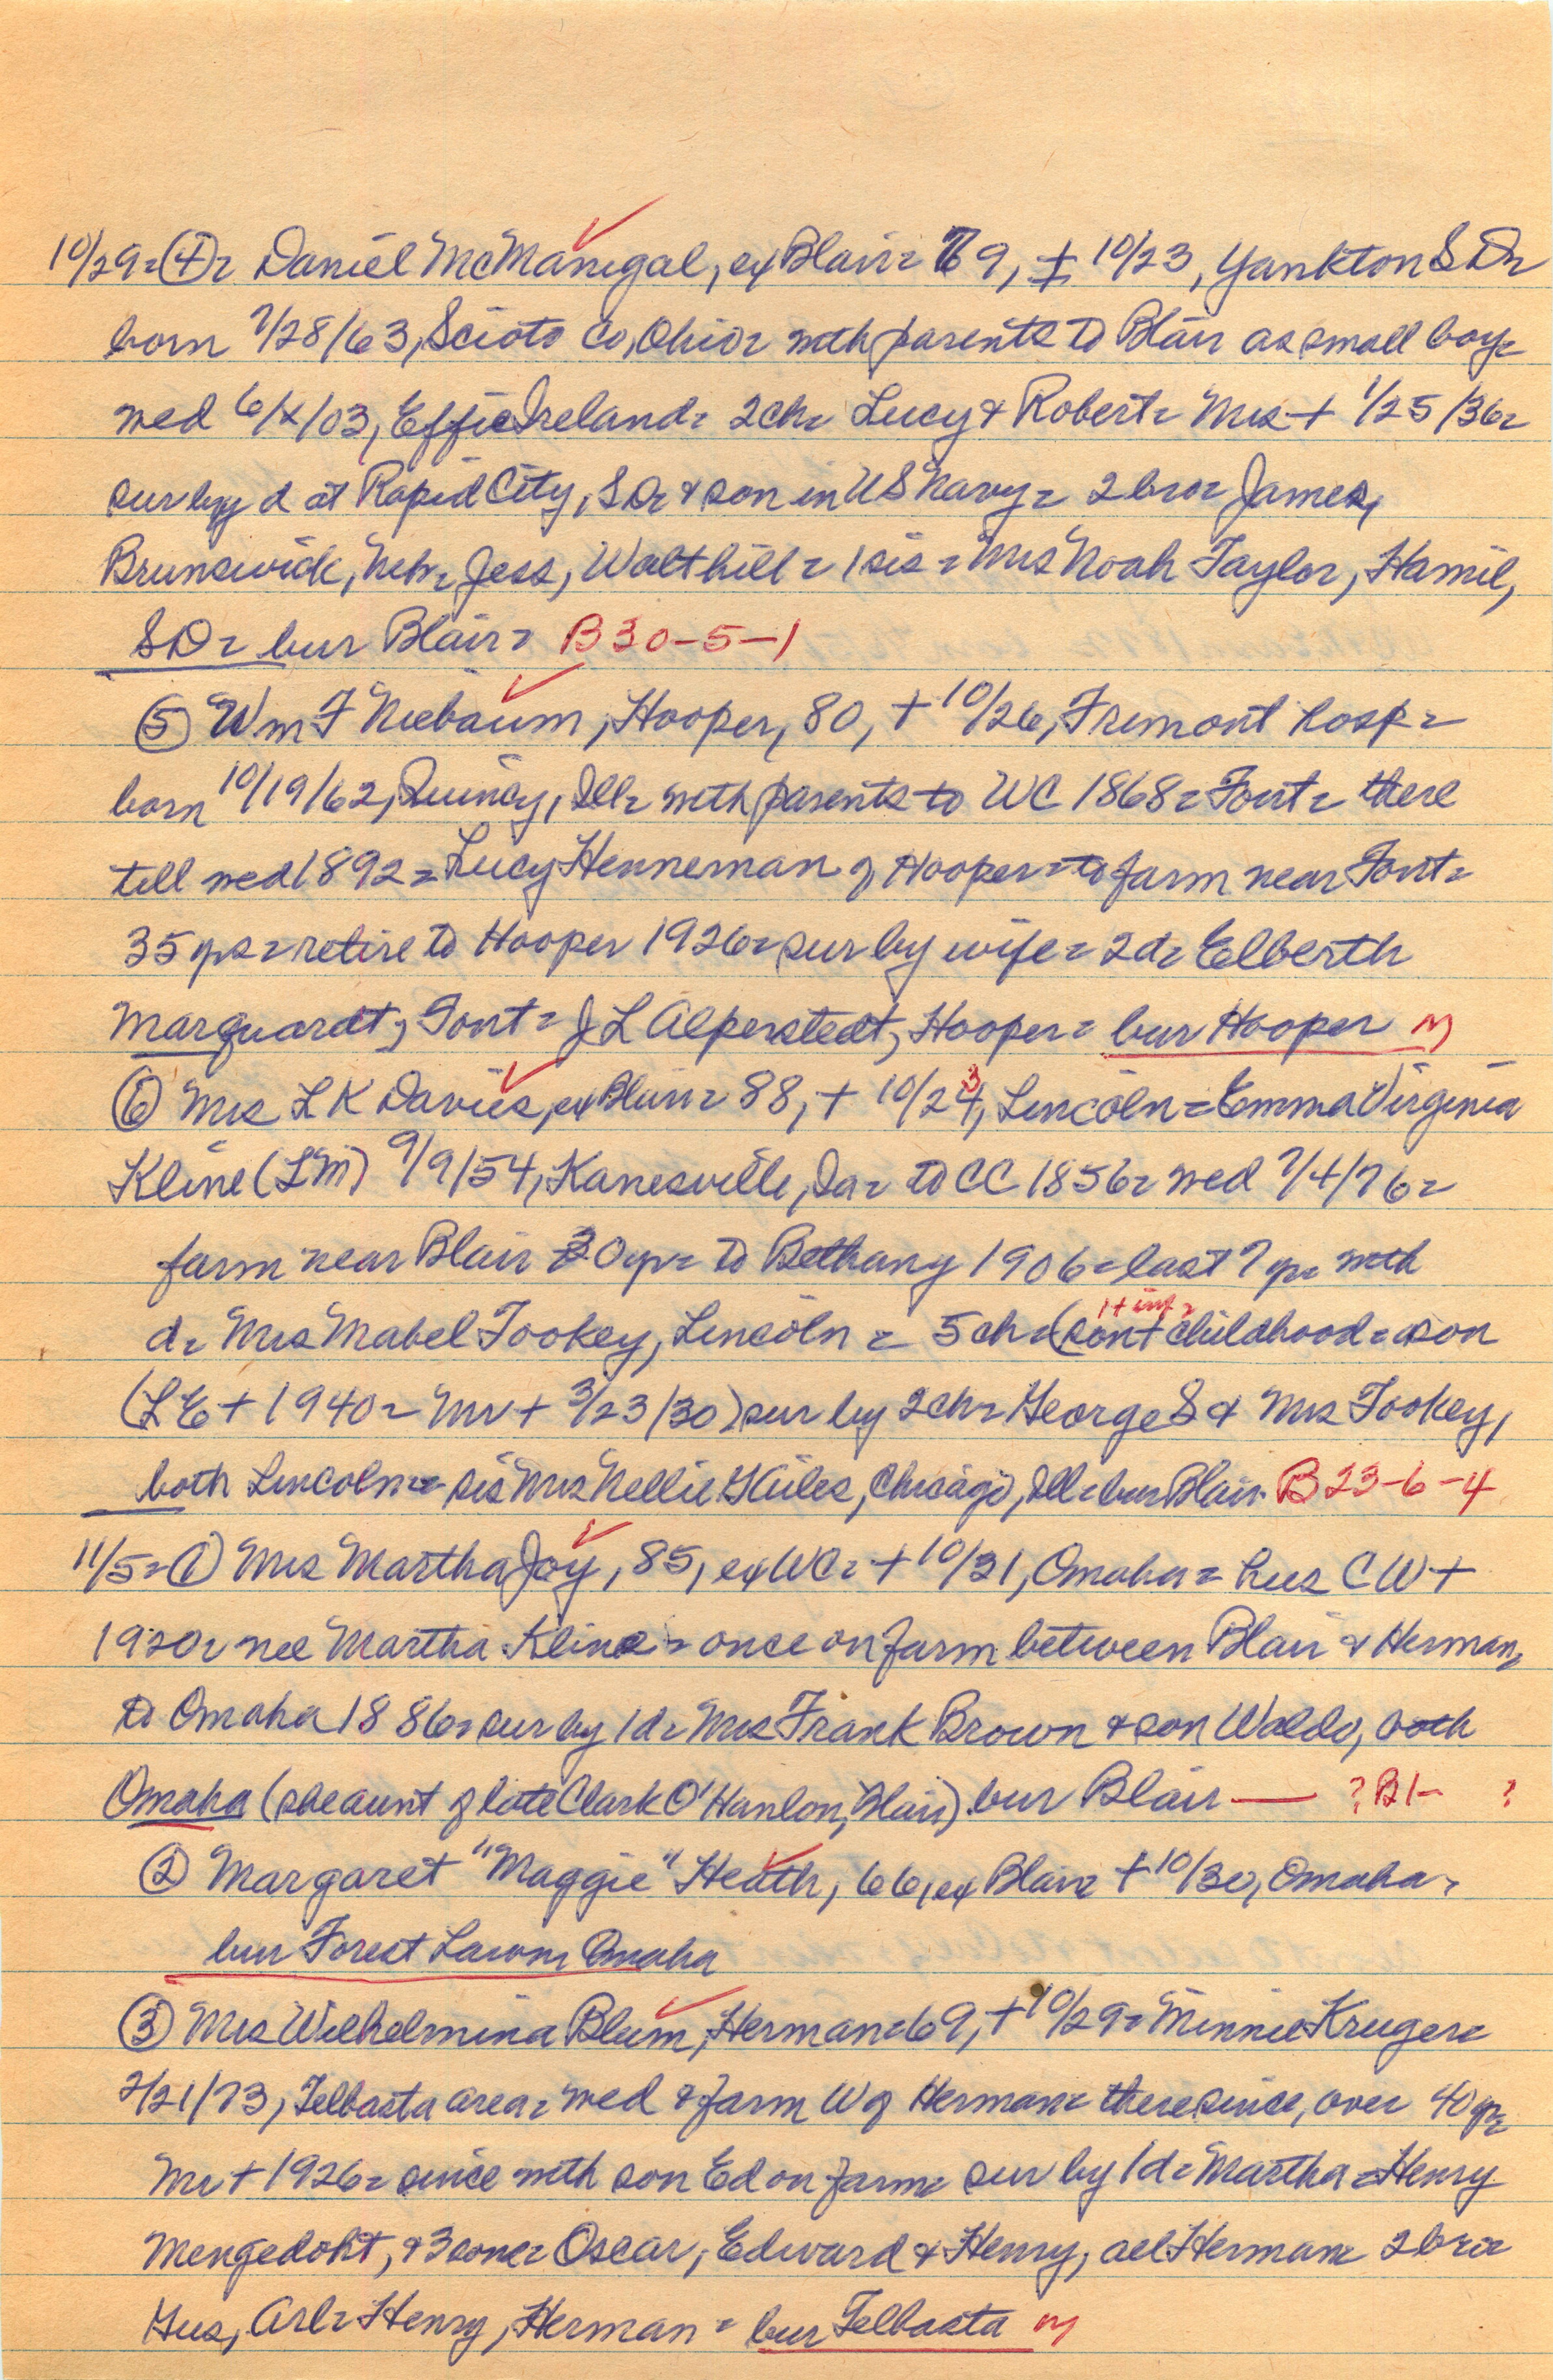 10/29 = (4) = Daniel McManigal, ex Blair = 79, + 10/23, Yankton S D =
born 7/28/63, Scioto Co, Ohio = with parents to Blair as small boy =
wed 6/x/03, Effie Ireland = 2 ch = Lucy & Robert = Mrs + 1/25/36 =
sur by d at Rapid City, S D = & son in US Navy = 2 bro = James,
Brunswick, Neb = Jess, Walthill = 1 sis = Mrs Noah Taylor, Hamil,
SD = bur Blair = B30-5-1
(5) Wm F Niebaum, Hooper, 80, + 10/26, Fremont hosp =
born 10/19/62, Quincy, Ill = with parents to WC 1868 = Font = there
till wed 1892 = Lucy Henneman of Hooper = to farm near Font =
35 yrs = retire to Hooper 1926 = sur by wife = 2 d = Elberth
Marquardt, Font = J L Alperstedt, Hooper = bur Hooper M
(6) Mrs L K Davies, ex Blair = 88, + 10/24 3, Lincoln = Emma Virginia
Kline (LM) 9/9/54, Kanesville, Ia = to CC 1856 = wed 7/4/76 =
farm near Blair 30 yr = to Bethany 1906 = last 7 yr = with
1 + inf =
d = Mrs Mabel Tookey, Lincoln = 5 ch = (son + childhood = son
(LE + 1940 = Mr + 3/23/30) sur by 2 ch = George S & Mrs Tookey,
both Lincoln = sis Mrs Nellie Giles, Chicago, Ill = bur Blair B 23-6-4
11/5 = (1) Mrs Martha Joy, 85, ex WC = + 10/31, Omaha = hus C W +
1920 = nee Martha Kline = once on farm between Blair & Herman =
to Omaha 1886 = sur by 1 d = Mrs Frank Brown & son Waldo, both
Omaha (she aunt of late Clark O'Hanlon, Blair) bur Blair — ? B1- ?
(2) Margaret "Maggie" Heath, 66, ex Blair = + 10/30, Omaha =
bur Forest Lawn Omaha
(3) Mrs Wilhelmina Blum, Herman = 69, + 10/29 = Minnie Kruger =
2/21/73, Telbasta area = wed & farm W of Herman = there since, over 40 yr =
Mr + 1926 = since with son Ed on farm = sur by 1 d = Martha = Henry
Mengedoht, & 3 sons = Oscar, Edward & Henry, all Herman = 2 bro =
Gus, Arl = Henry, Herman = bur Telbasta M